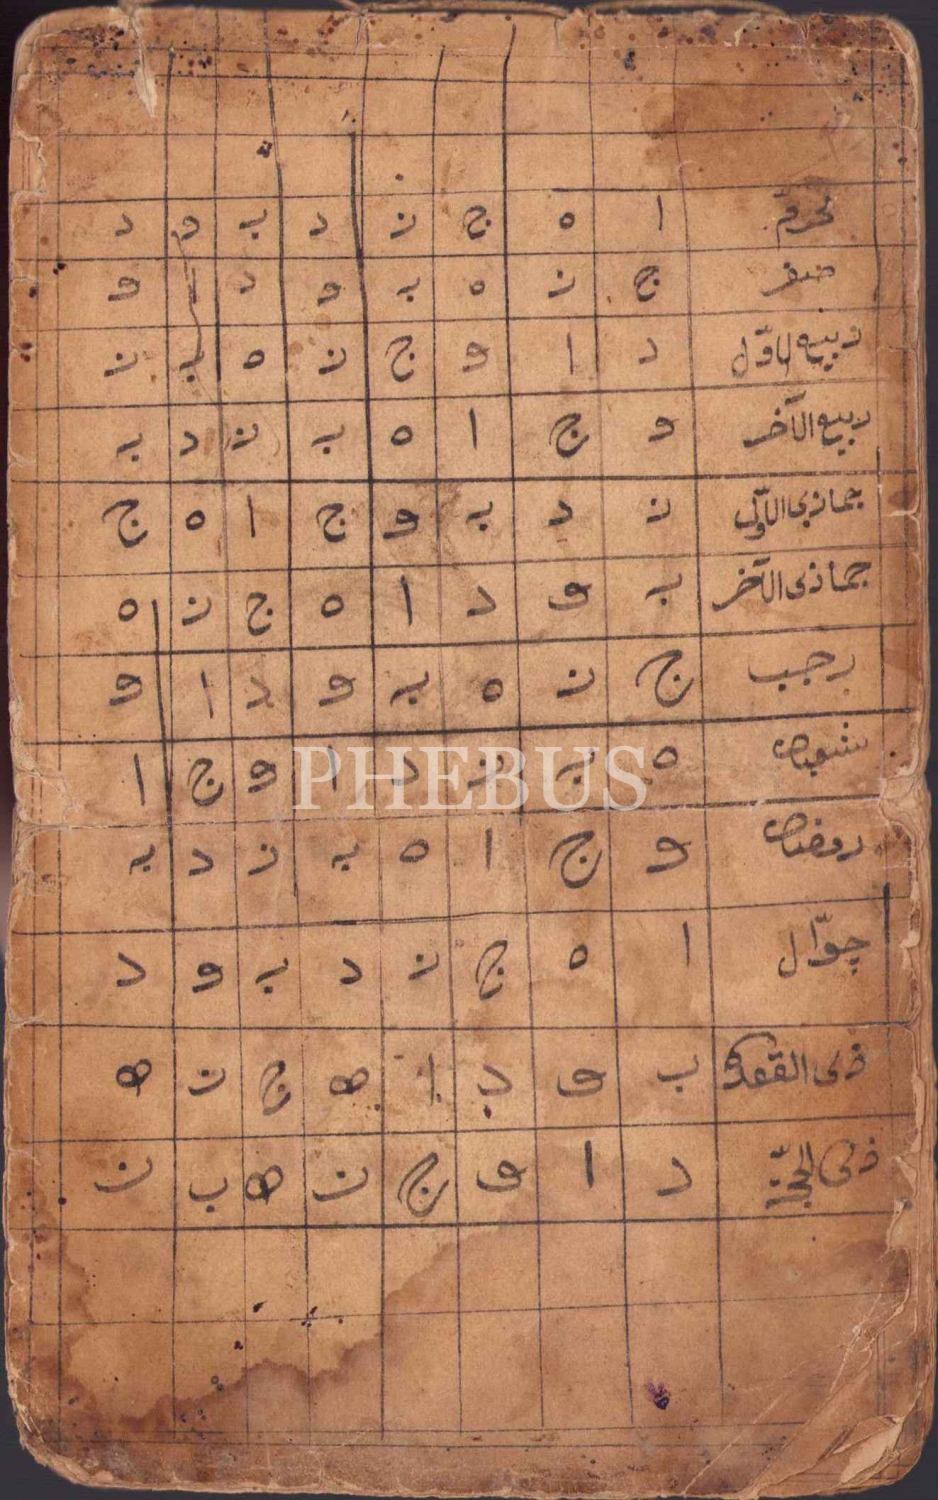 محرم ا ه ج ز د ب و د
صفر ج ز ه ب و د ا و
ربيع الاوّل د ا و ج ز ه ب ز
ربيع الآخر و ج ا ه ب ز د ب
جماذى الاوّلى ز د ب و ج ا ه ج
جماذى الآخر ب و د ا ه ج ز ه
رجب ج ز ه ب و د ا و
شعبان ه ب ز د ا و ج ا
PHEBUS
رمضان و ج ا ه ب ز د ب
چوّال ا ه ج ز د ب و د
ذى القعده ب و د ا ه ج ز ه
ذى الحجّة د ا و ج ز ه ب ز